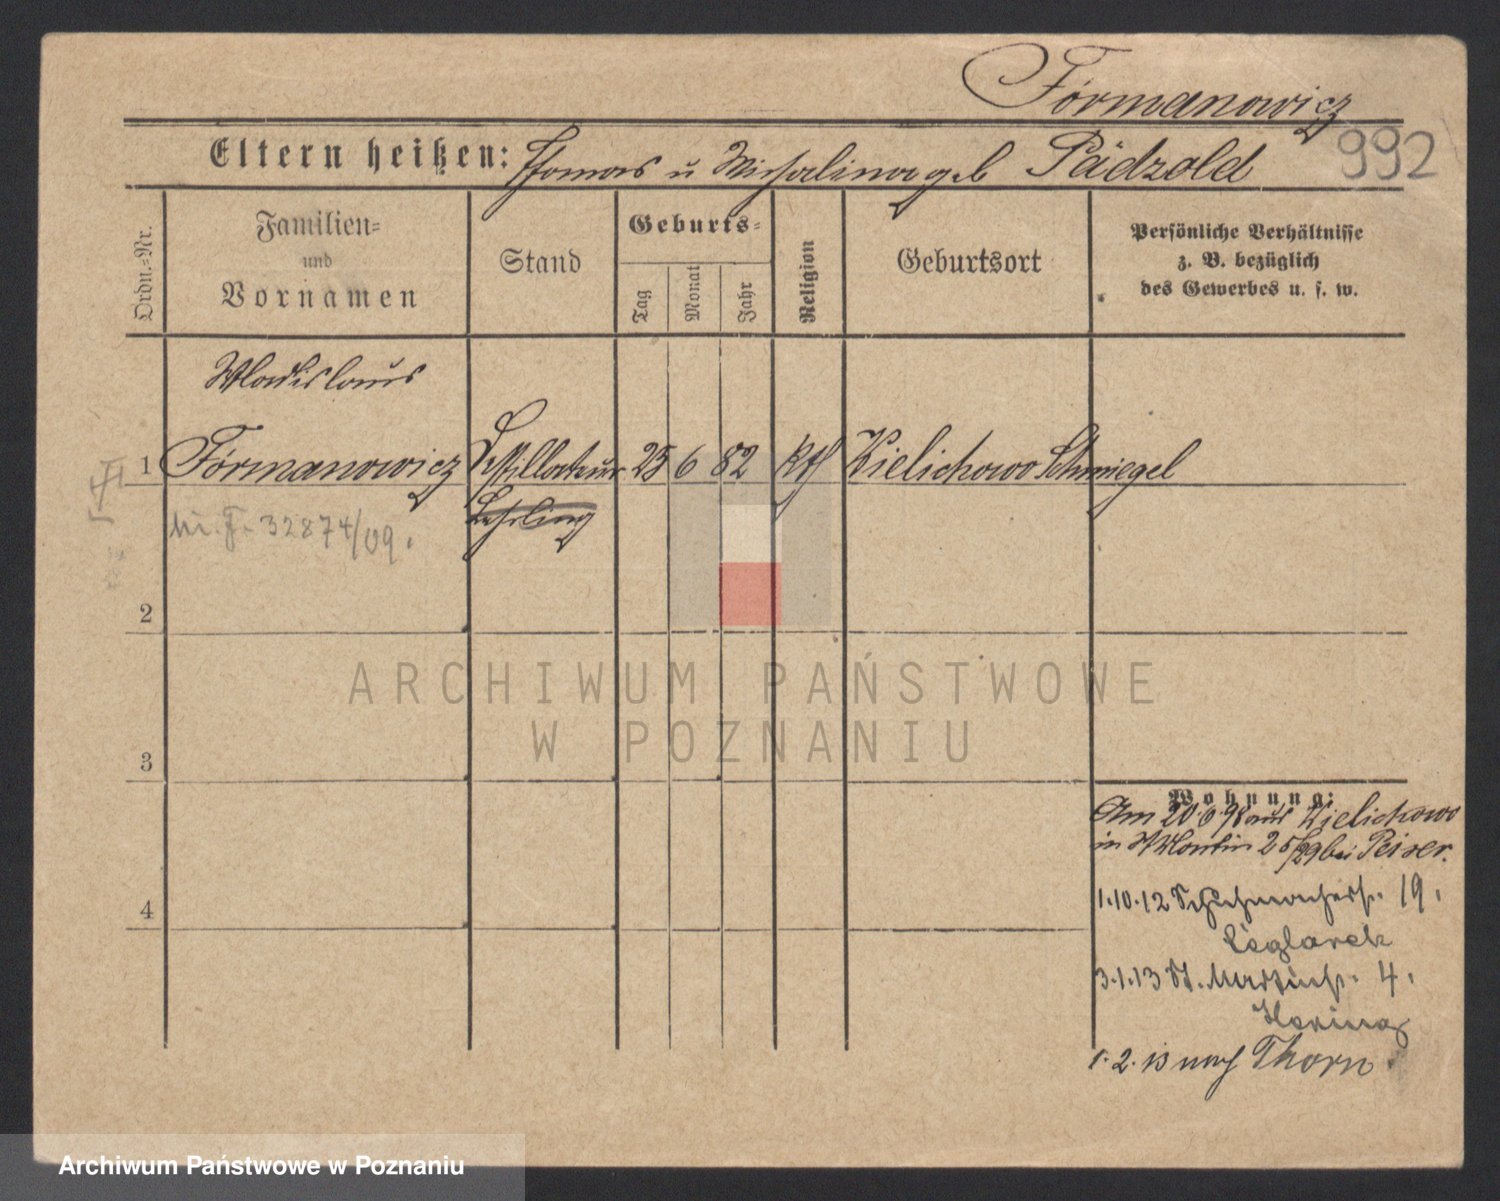 Formanowicz
992
Eltern heißen: Thomas u Michalina geb Pädzold
Ordn.-Nr.
Familien-
und
Vornamen
Stand
Geburts-
Tag
Monat
Jahr
Religion
Geburtsort
Persönliche Verhältnisse
z. B. bezüglich
des Gewerbes u. s. w.
Wladislaus
1 Formanowicz Destillateur 25 6 82 kth Kielichowo Schmiegel
Lehrling
32874/09.
2
ARCHIWUM PAŃSTWOWE
W POZNANIU
3
Wohnung:
Am 20.6.98 aus Kielichowo
in 25/29 bei Peiser.
4
1.10.12 Schuhmacherstr. 19.
Ceglarek
3.1.13 St. Martinstr. 4.
1.2.13 nach Thorn.
Archiwum Państwowe w Poznaniu